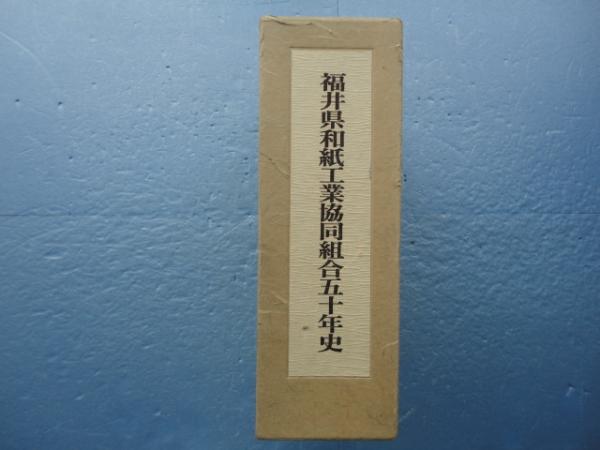 福井県和紙工業協同組合五十年史